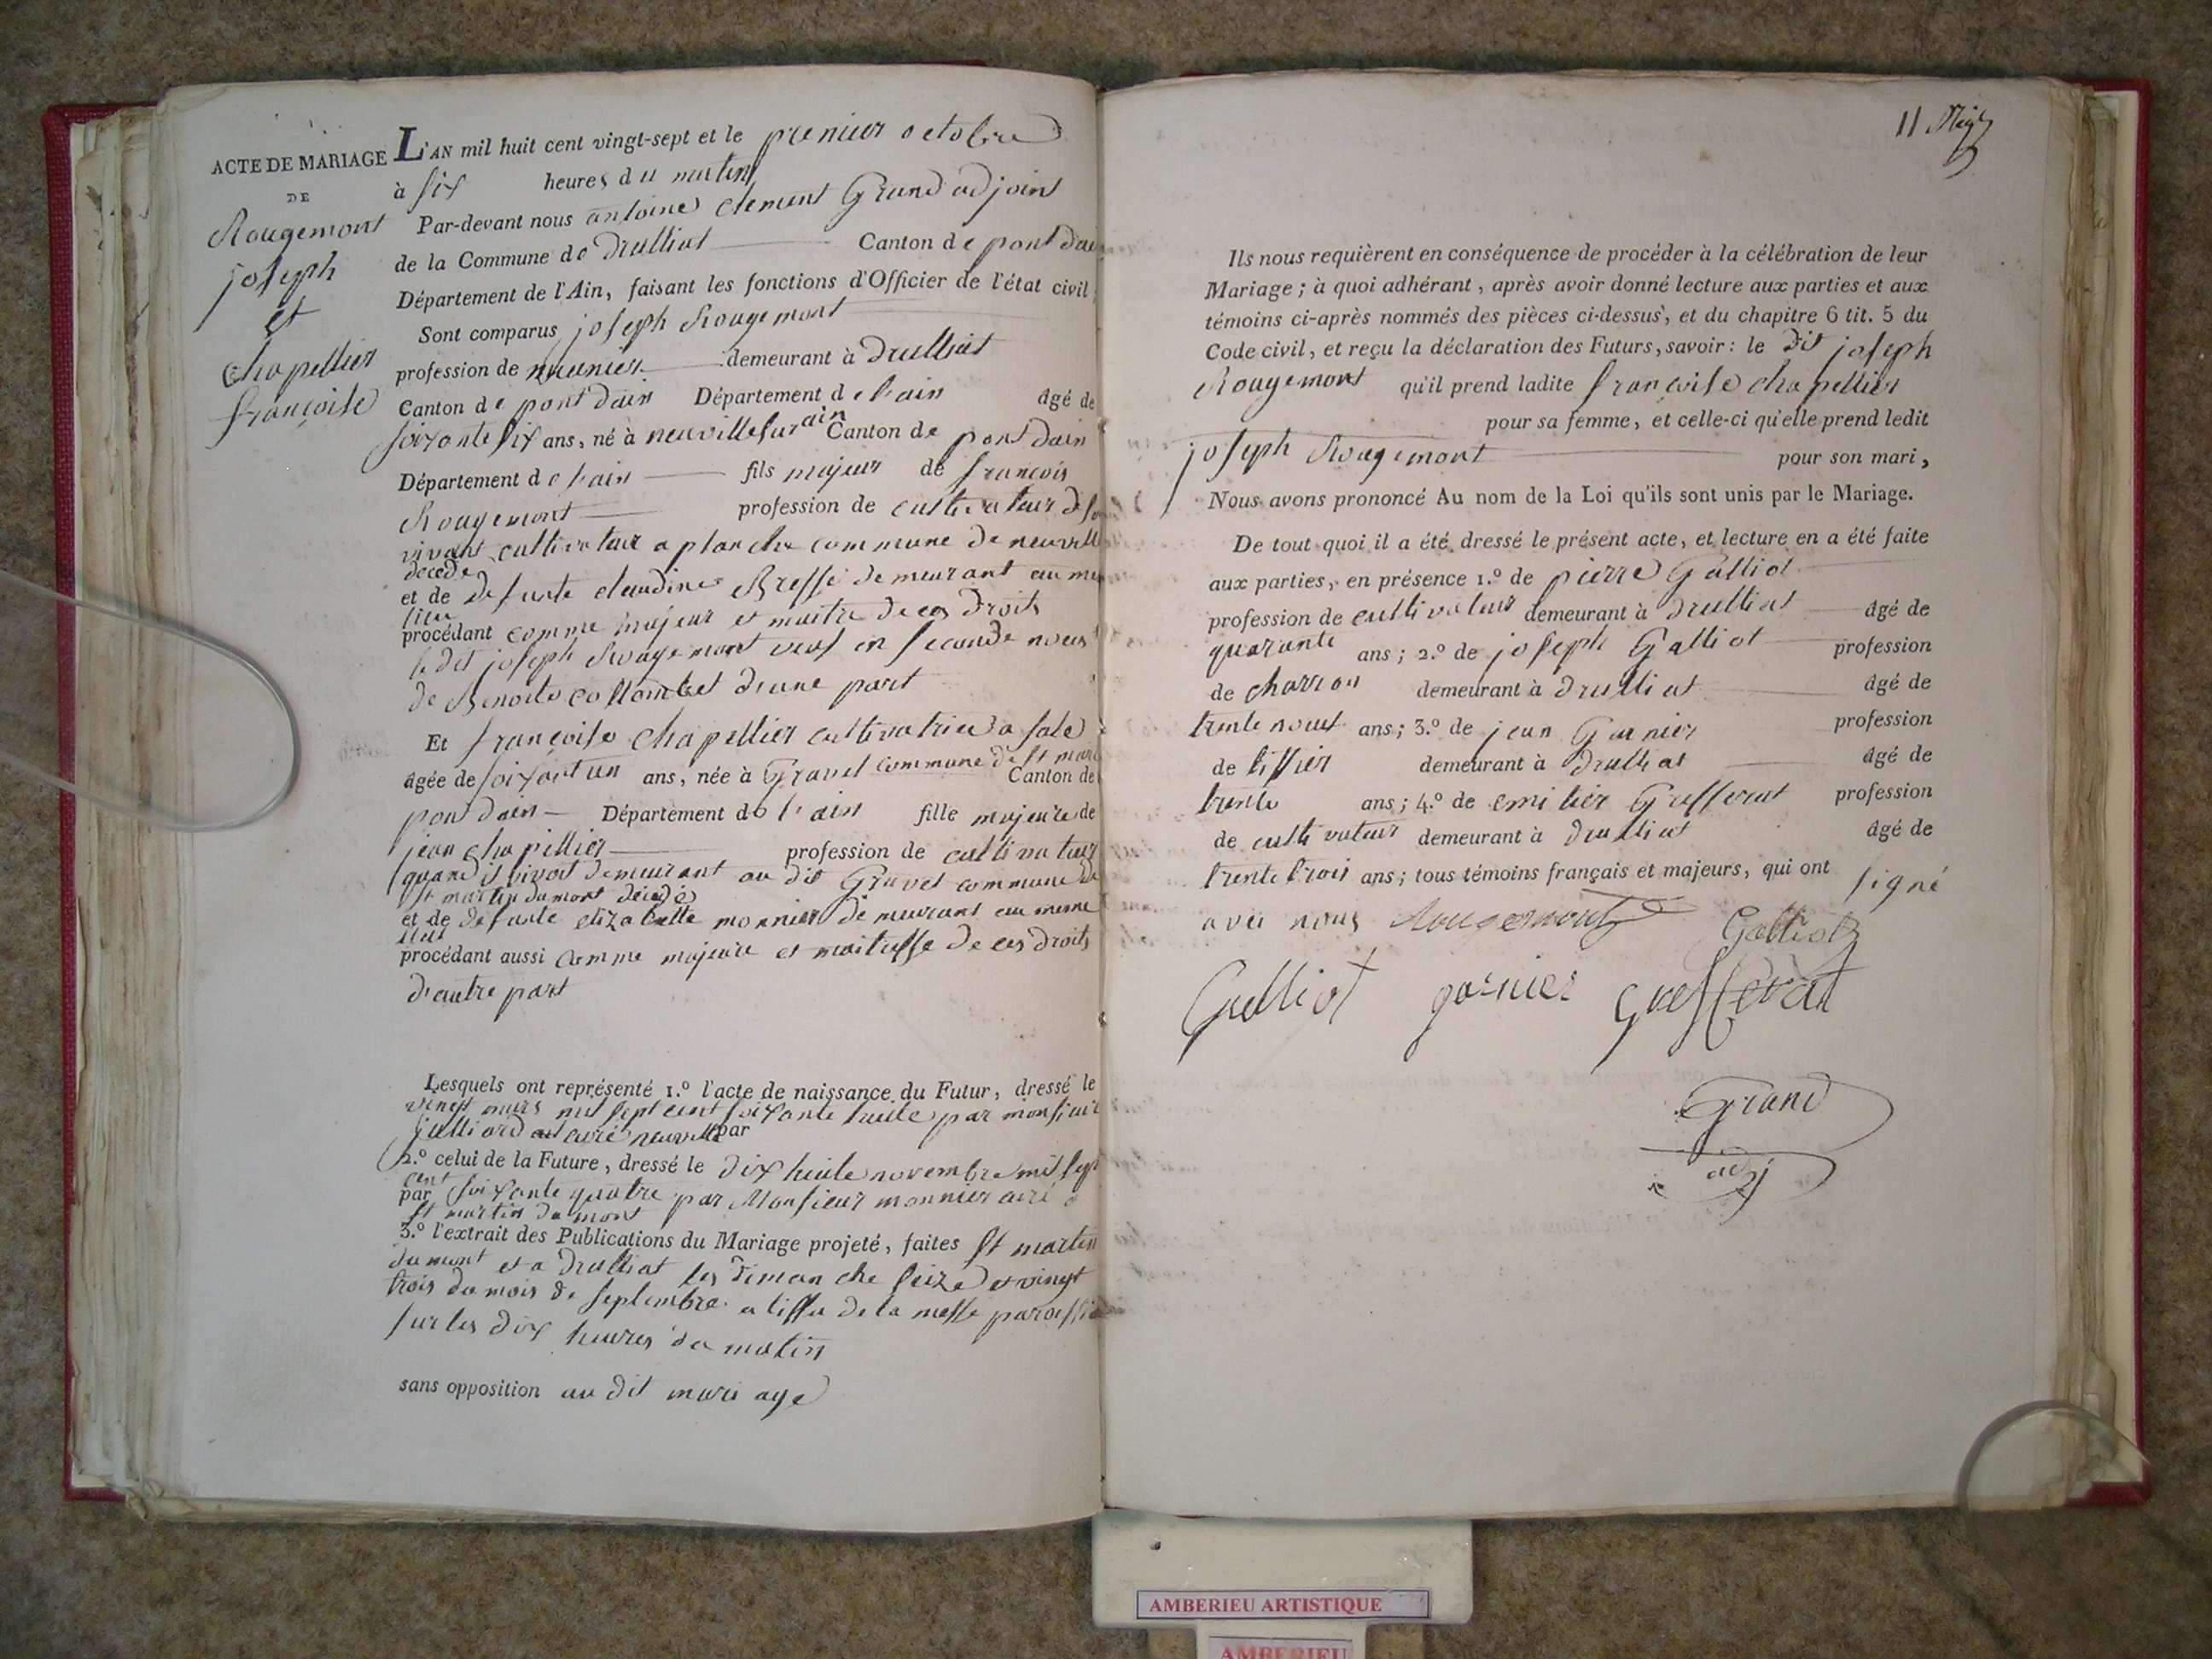 ACTE DE MARIAGE
DE
Rougemont
joseph
et
chapellier
françoise
L'AN mil huit cent vingt-sept et le premier octobre
à six heures du matin
Par-devant nous antoine clement Grand adjoint
de la Commune de Druillat Canton de pont dain
Département de l'Ain, faisant les fonctions d'Officier de l'état civil
Sont comparus joseph Rougemont
profession de meunier demeurant à druilliat
Canton de pont dain Département de l'ain âgé de
soixante six ans, né à neuville sur ain Canton de pont dain
Département de l'ain fils majeur de françois
Rougemont profession de cultivateur de son
vivant cultivateur a planche commune de neuville
décédé
et de defunte claudine Bresse demeurant au meme
lieu
procédant comme majeur et maitre de ces droits
le dit joseph Rougemont veuf en seconde noces
de Benoite collombet d'une part
Et françoise chapellier cultivatrice a sale
âgée de soixant un ans, née à Gravel commune de st mar
Canton de
pont dain Département de l'ain fille majeure de
jean chapillier profession de cultivateur
quand il vivoit demeurant au dit Gravel commune de
st martin du mont décédé
et de defunte elizabette monnier demeurant au meme
lieu
procédant aussi comme majeure et maitresse de ces droits
d'autre part
Lesquels ont représenté 1.º l'acte de naissance du Futur, dressé le
vingt mars mil sept cent soixante huite par monsieur
julliard curé neuville par
2.º celui de la Future, dressé le dix huite novembre mil sept
cent
par soixante quatre par Monsieur monnier curé a
st martin du mont
3.º l'extrait des Publications du Mariage projeté, faites st martin
du mont et a druilliat les dimanche seize et vingt
trois du mois de septembre a lissu de la messe paroissia
sur les dix heures du matin
sans opposition au dit mariage
11
Ils nous requièrent en conséquence de procéder à la célébration de leur
Mariage ; à quoi adhérant, après avoir donné lecture aux parties et aux
témoins ci-après nommés des pièces ci-dessus, et du chapitre 6 tit. 5 du
Code civil, et reçu la déclaration des Futurs, savoir : le dit joseph
Rougemont qu'il prend ladite françoise chapellier
pour sa femme, et celle-ci qu'elle prend ledit
joseph Rougemont pour son mari,
Nous avons prononcé Au nom de la Loi qu'ils sont unis par le Mariage.
De tout quoi il a été dressé le présent acte, et lecture en a été faite
aux parties, en présence 1.º de pierre Galliot
profession de cultivateur demeurant à druilliat âgé de
quarante ans ; 2.º de joseph Galliot profession
de charron demeurant à druilliat âgé de
trente nouf ans ; 3.º de jean Garnier profession
de tissier demeurant à druilliat âgé de
trente ans ; 4.º de emilier Gufferat profession
de cultivateur demeurant à druilliat âgé de
trente trois ans ; tous témoins français et majeurs, qui ont signé
avec nous Rougemont Galliot
Galliot garnier
Grand
adj
AMBERIEU ARTISTIQUE
AMBERIEU